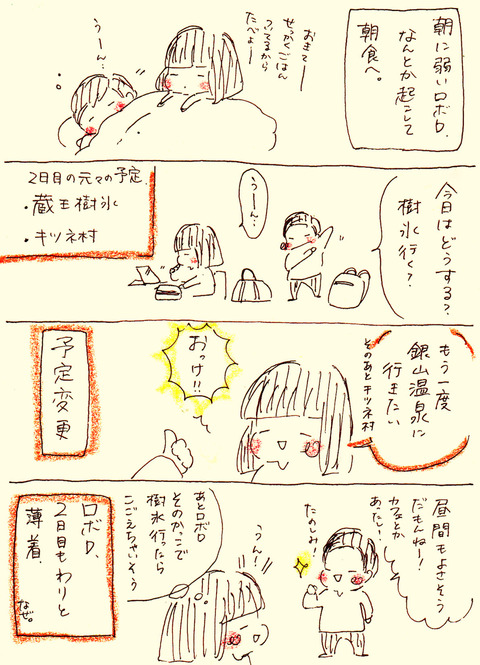 朝に弱いロボロ、
なんとか起こして
朝食へ。
おきてー
せっかくごはん
ついてるから
たべよー
うーん…
今日はどうする?
樹氷行く?
うーん…
2日目の元々の予定
・蔵王樹氷
・キツネ村
もう一度
銀山温泉に
行きたい
そのあとキツネ村
おっけ!!
予定変更
昼間もよさそう
だもんねー!
カフェとか
あったし!
たのしみ!
うん!
あとロボロ
そのかっこで
樹氷行ったら
こごえちゃいそう
ロボロ、
2日目もわりと
薄着。
なぜ。